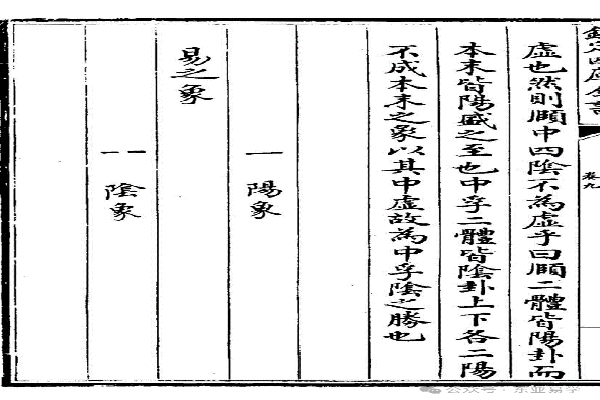 欽定四庫全書
卷九
虛也然則頤中四陰不為虛乎曰頤二體皆陽卦而
本末皆陽盛之至也中孚二體皆陰卦上下各二陽
不成本末之象以其中虛故為中孚陰之勝也
一 陽象
易之象
-- 陰象
公众号·东亚易学